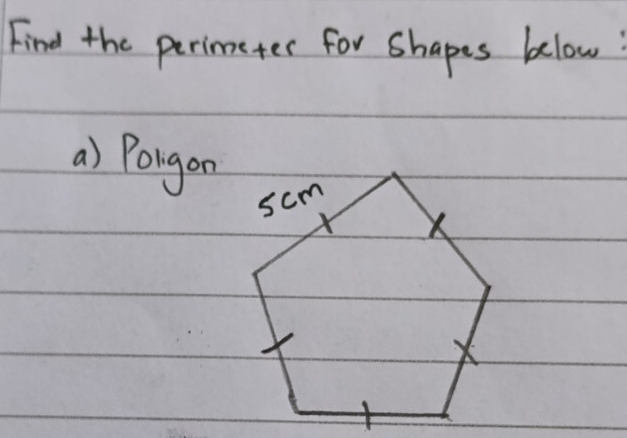 Find the perimeter for shapes below :
a) Poligon
5cm